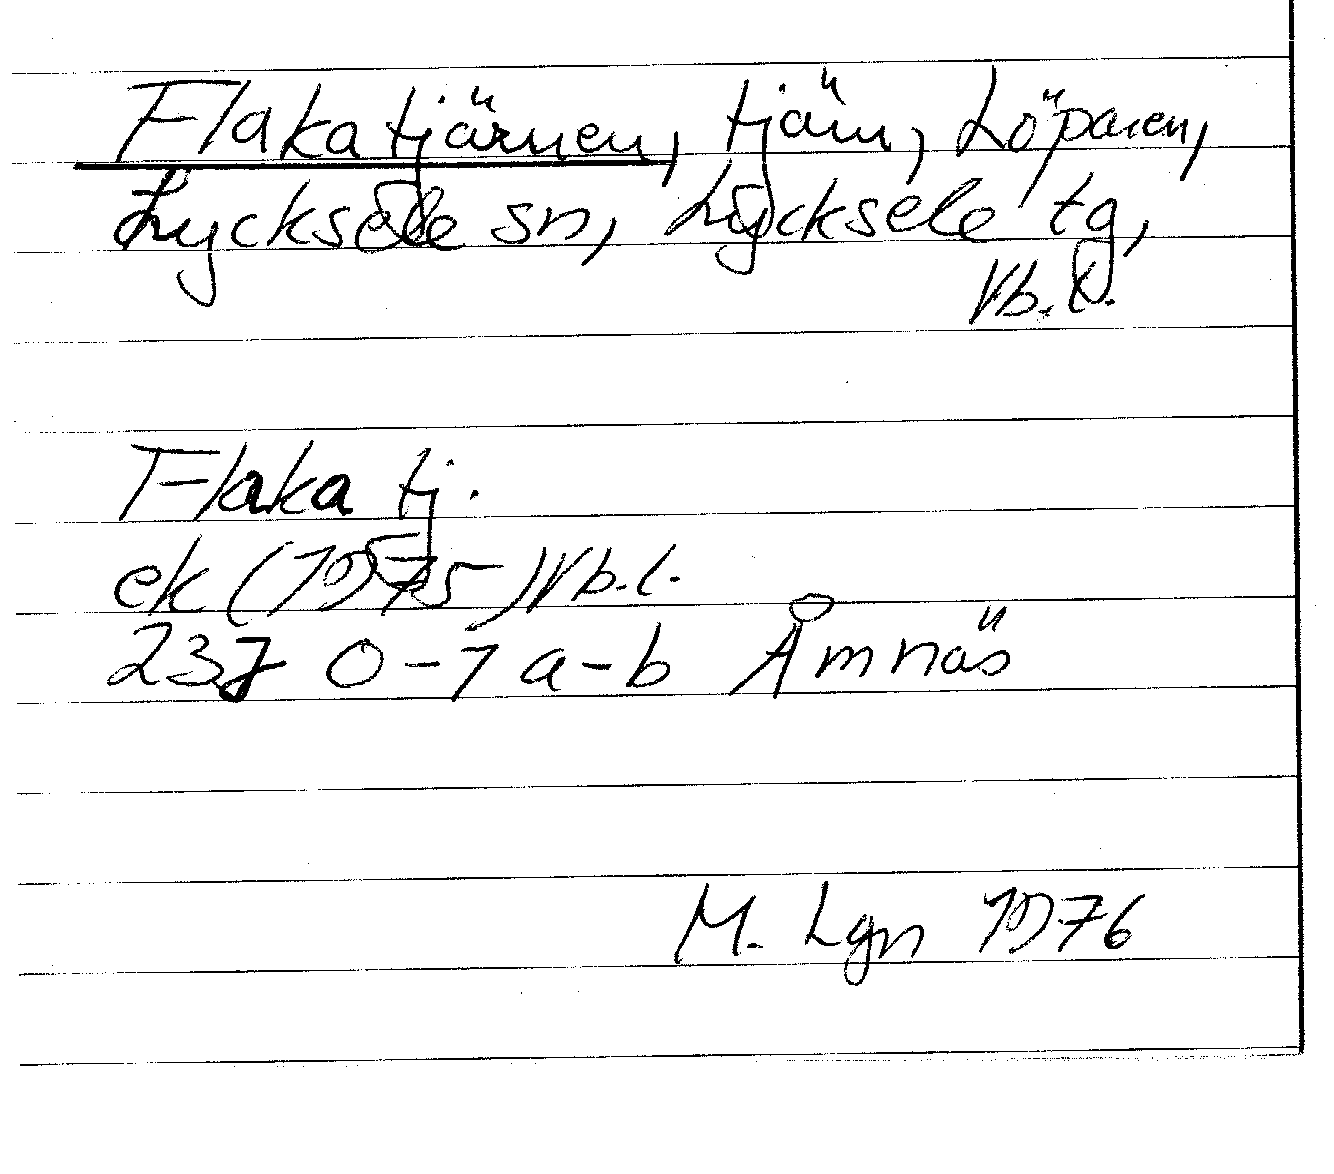 Flakatjärnen, tjärn, Löparen,
Lycksele sn, Lycksele tg,
Vb.l.
Flaka tj.
ek (1975) Vb.l.
23J 0-1 a-b Åmnäs
M. Lgn 1976